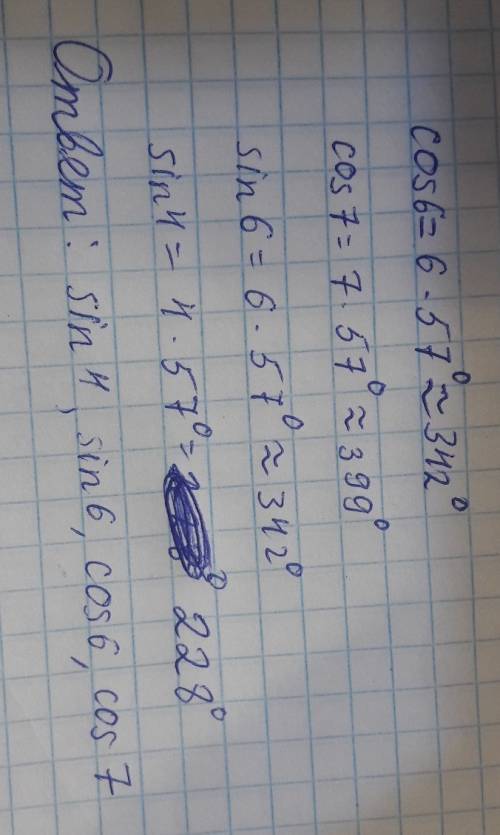 cos6 = 6 · 57° ≈ 342°
cos7 = 7 · 57° ≈ 399°
sin6 = 6 · 57° ≈ 342°
sin4 = 4 · 57° = 228°
Ответ: sin4, sin6, cos6, cos7